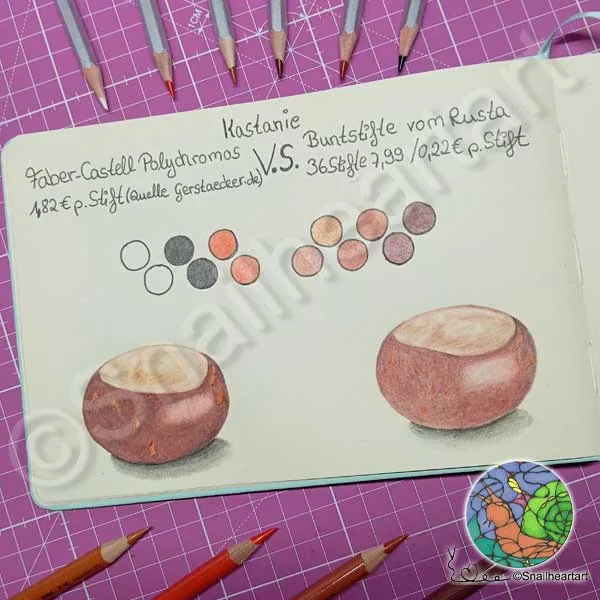 1CM
Kastanie
Faber-Castell Polychromos
1,82 € p. Stift (Quelle Gerstaecker.de)
V.S.
Buntstifte vom Rusta
36 Stifte 7,99 / 0,22 € p. Stift
©Snailheartart
©Snailheartart